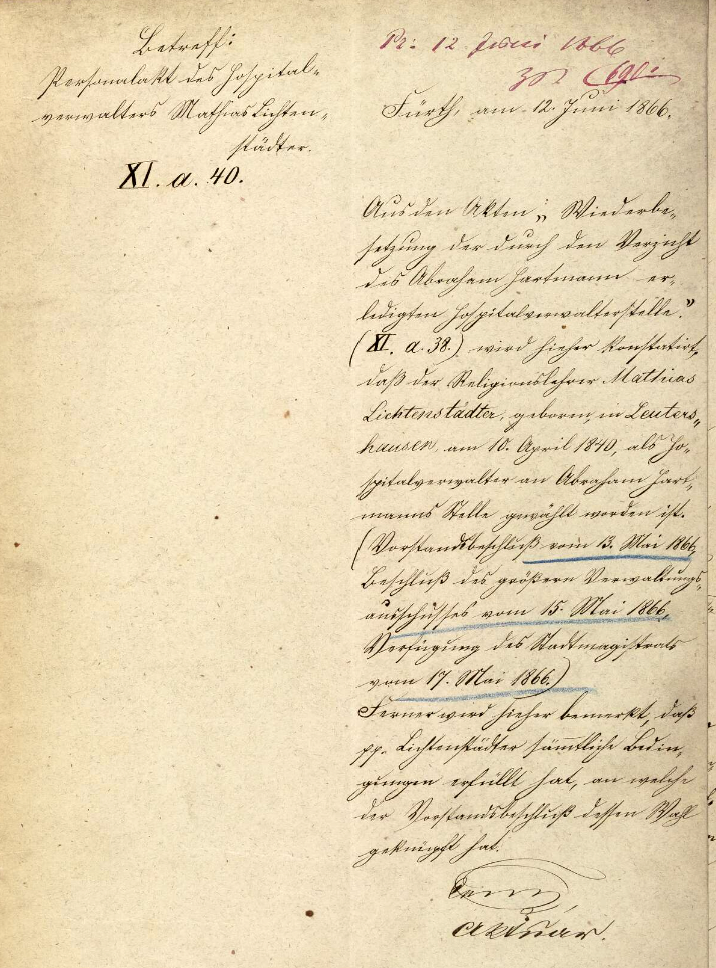 Betreff:
Personalakt des Hospital-
verwalters Mathias Lichten-
städter.
XI. a. 40.
Pr: 12 Juni 1866
Fürth, am 12. Juni 1866.
Aus den Akten: „Wiederbe-
setzung der durch den Verzicht
des Abraham Hartmann er-
ledigten Hospitalverwalterstelle."
(XI. a. 38.) wird hieher konstatirt,
daß der Religionslehrer Mathias
Lichtenstädter, geboren in Leuters-
hausen, am 10. April 1840, als Ho-
spitalverwalter an Abraham Hart-
manns Stelle gewählt worden ist.
(Vorstandsbeschluß vom 13. Mai 1866,
Beschluß des größern Verwaltungs-
ausschusses vom 15. Mai 1866,
Verfügung des Stadtmagistrats
vom 17. Mai 1866.)
Ferner wird hieher bemerkt, daß
pp. Lichtenstädter sämtliche Bedin-
gungen erfüllt hat, an welche
der Vorstandsbeschluß dessen Wahl
geknüpft hat.
Aktuar.